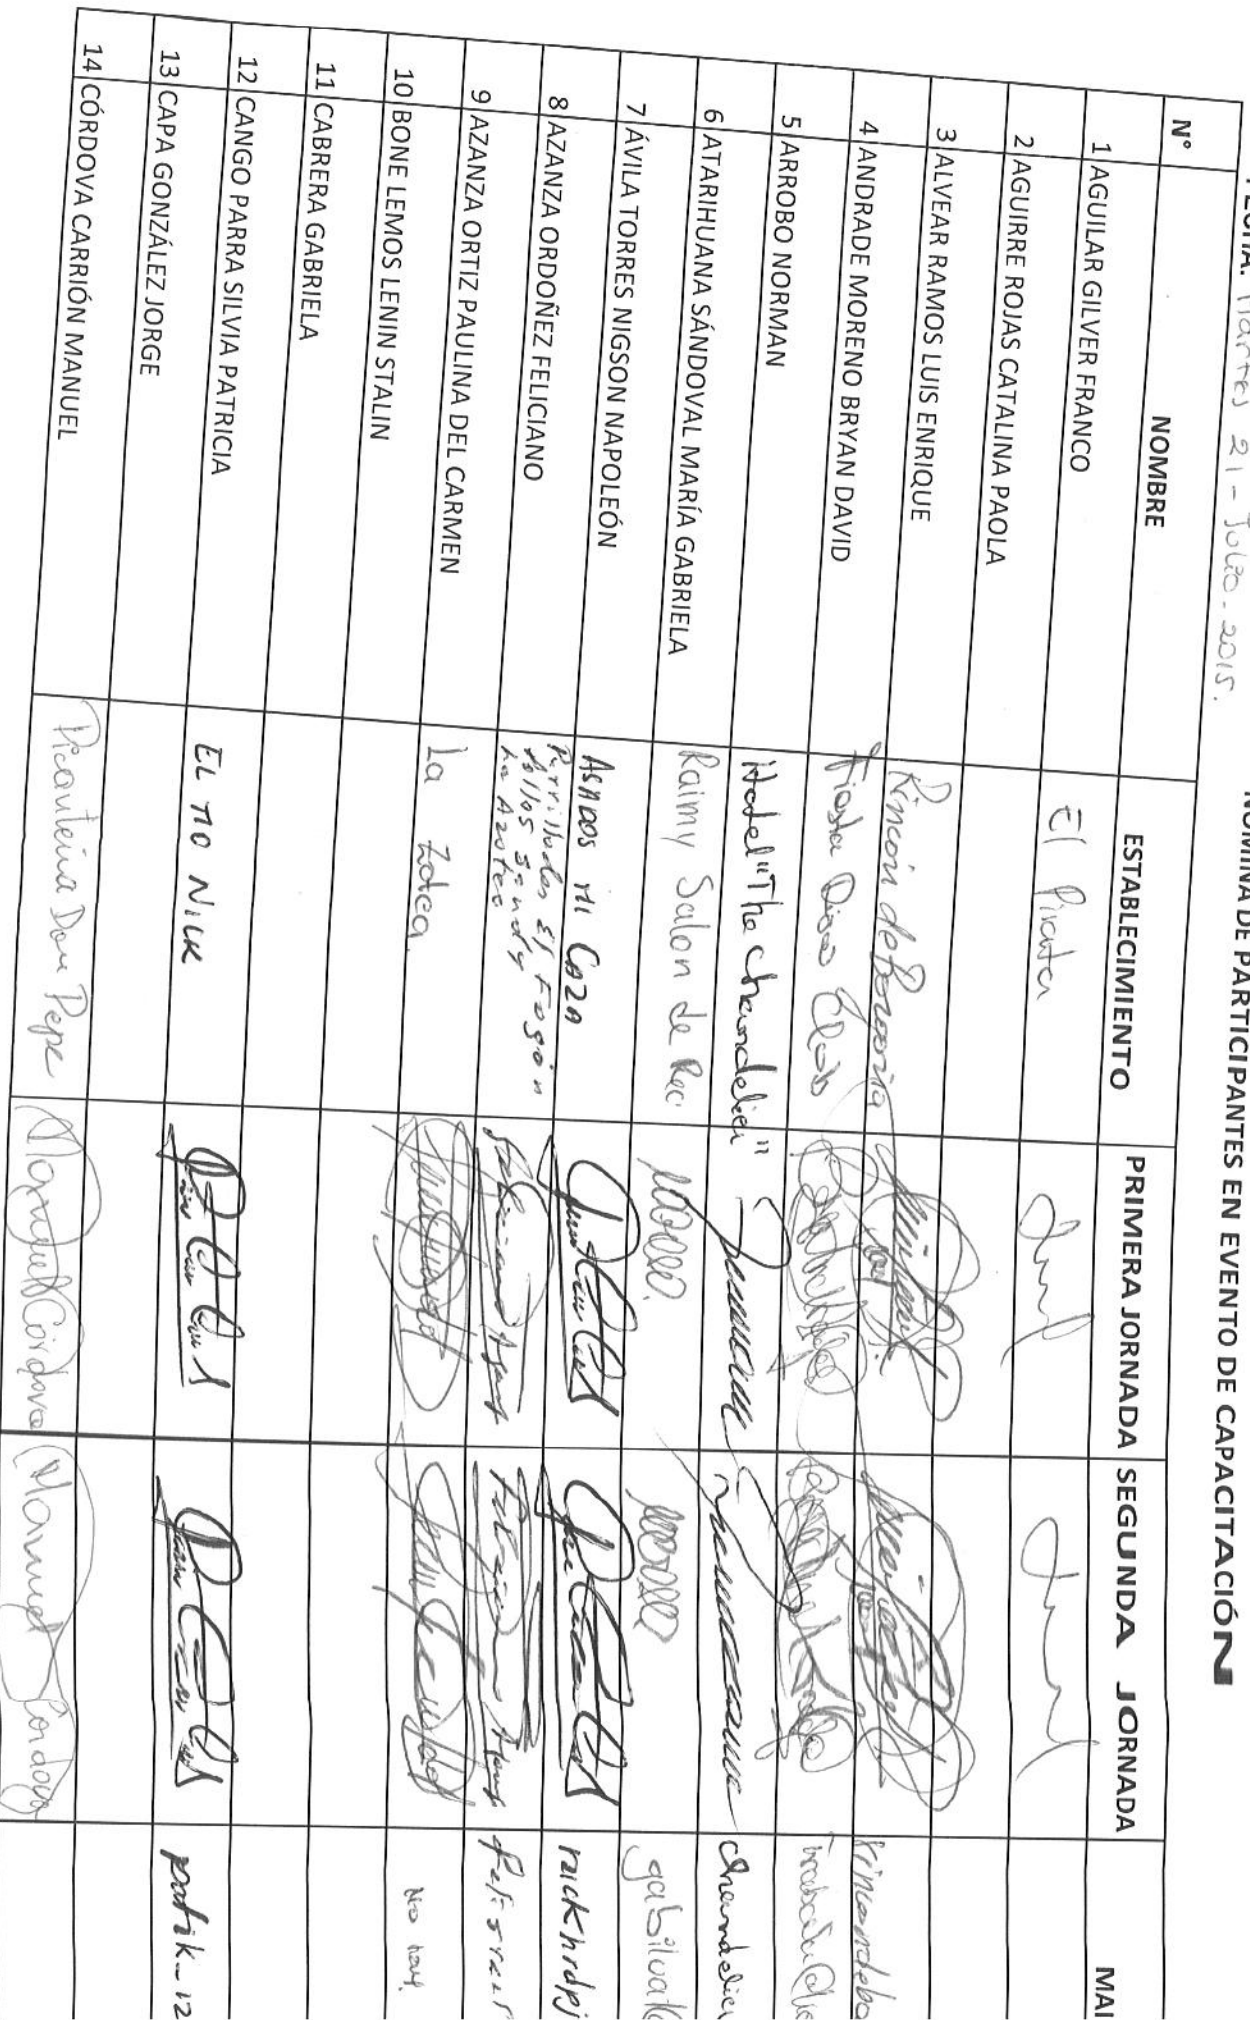 FECHA: Martes 21-Julio-2015.
NOMINA DE PARTICIPANTES EN EVENTO DE CAPACITACIÓN
N° NOMBRE ESTABLECIMIENTO PRIMERA JORNADA SEGUNDA JORNADA MAI
1 AGUILAR GILVER FRANCO El Pirata
2 AGUIRRE ROJAS CATALINA PAOLA
3 ALVEAR RAMOS LUIS ENRIQUE Rincon de
4 ANDRADE MORENO BRYAN DAVID Fiesta Disco Club
5 ARROBO NORMAN Hotel "The chandelier" chandelier
6 ATARIHUANA SÁNDOVAL MARÍA GABRIELA Raimy Salon de Rec.
7 ÁVILA TORRES NIGSON NAPOLEÓN ASADOS MI CAZA
8 AZANZA ORDOÑEZ FELICIANO Parrilladas El Fogón
Pollos Sandy
La Azotea
9 AZANZA ORTIZ PAULINA DEL CARMEN La Zotea. No hay.
10 BONE LEMOS LENIN STALIN
11 CABRERA GABRIELA
12 CANGO PARRA SILVIA PATRICIA EL TIO NICK patik_12
13 CAPA GONZÁLEZ JORGE
14 CÓRDOVA CARRIÓN MANUEL Picanteria Don Pepe Manuel Córdova Manuel Cordova